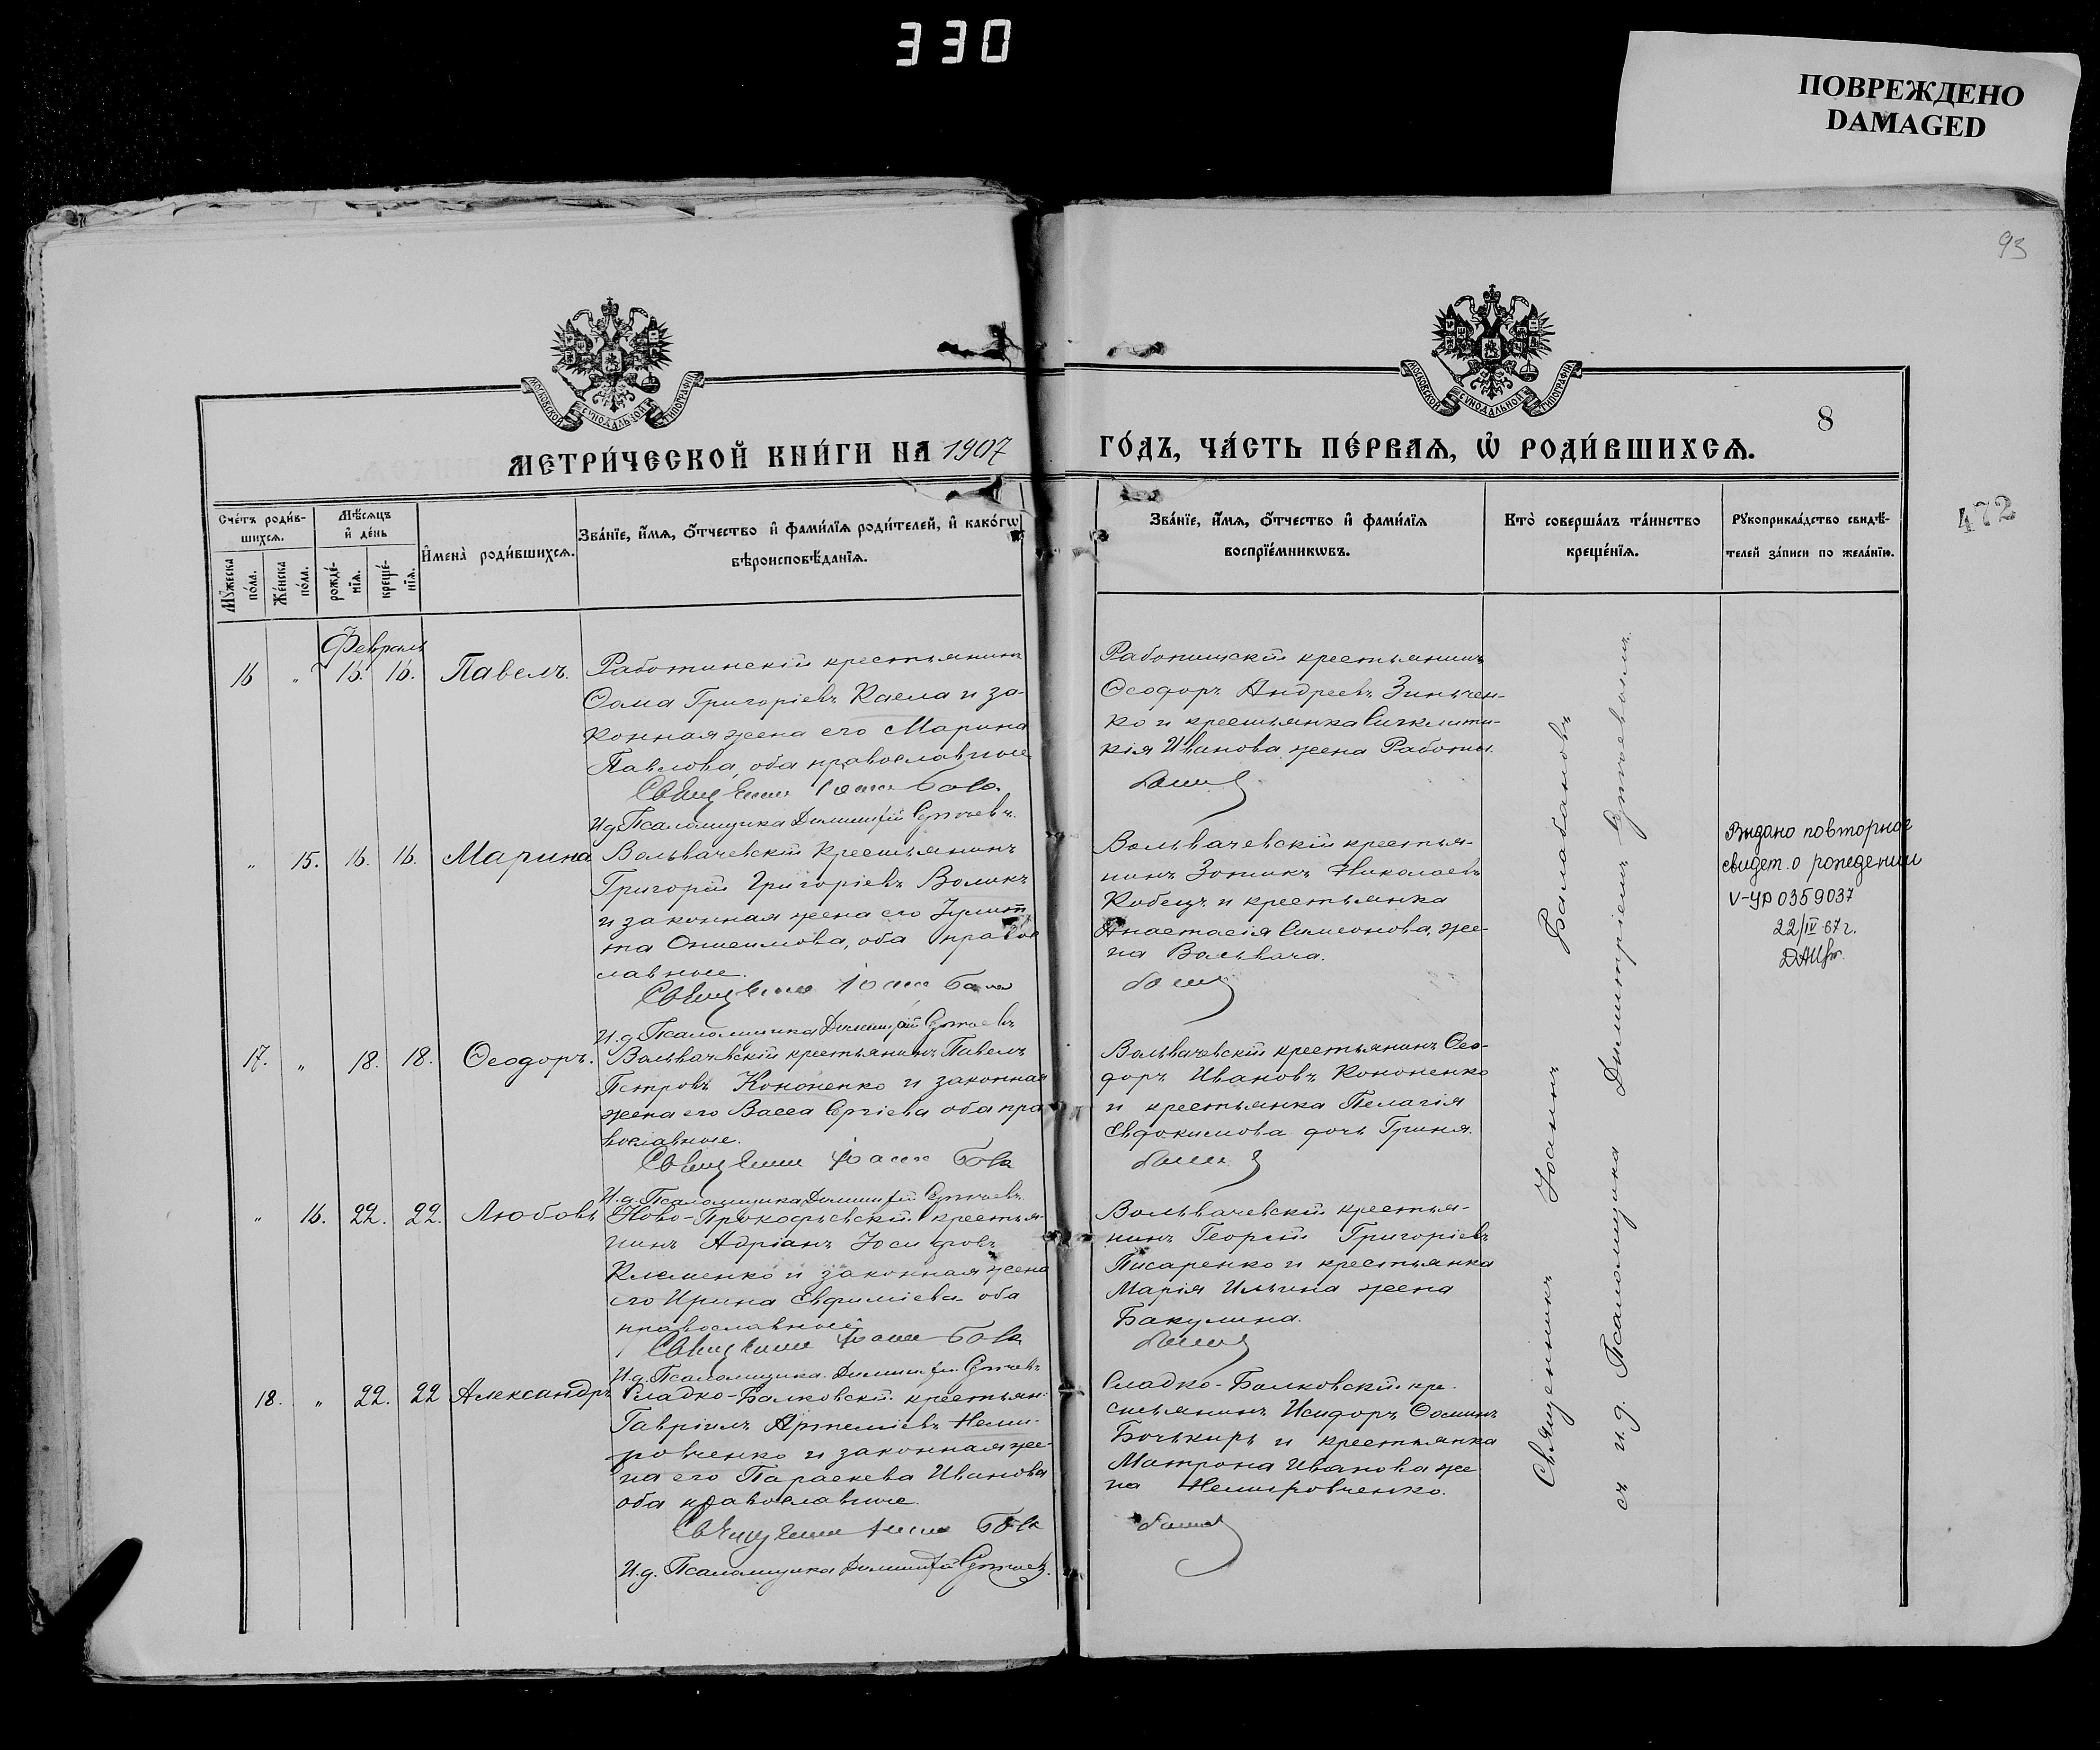 330
ПОВРЕЖДЕНО
DAMAGED
93
МОСКОВСКОЙ СѴНОДАЛЬНОЙ ТИПОГРАФІИ
МОСКОВСКОЙ СѴНОДАЛЬНОЙ ТИПОГРАФІИ
8
МЕТРИ́ЧЕСКОЙ КНИ́ГИ НА 1907
ГО́ДЪ, ЧА́СТЬ ПЕ́РВАѦ, Ѡ҆ РОДИ́ВШИХСѦ.
472
Сче́тъ роди́в-
шихсѧ.
Мѣ́сѧцъ
и҆ де́нь
Мꙋ́жеска по́ла.
Же́нска по́ла.
рожде́-
нїѧ.
креще́-
нїѧ.
И҆мена̀ роди́вшихсѧ.
Зва́нїе, и҆́мѧ, ѻ҆́тчество и҆ фами́лїѧ роди́телей, и҆ како́гѡ
вѣроисповѣ́данїѧ.
Зва́нїе, и҆́мѧ, ѻ҆́тчество и҆ фами́лїѧ
воспрїе́мникѡвъ.
Кто̀ соверша́лъ та́инство
креще́нїѧ.
Рꙋкоприкла́дство свидѣ́-
телей за́писи по жела́нїю.
Февраль
16 „ 15. 16. Павелъ.
Работинскій крестьянинъ
Ѳома Григоріевъ Каела и за-
конная жена его Марина
Павлова, оба православные
Священникъ Іоаннъ Бала
И.д. Псаломщика Димитрій
Работинскій крестьянинъ
Ѳеодоръ Андреевъ Зинчен-
ко и крестьянка
Иванова жена Работы.
„ 15. 16. 16. Марина
Вольвачевскій крестьянинъ
Григорій Григоріевъ Воликъ
и законная жена его
Онисимова, оба право
славные.
Священникъ Іоаннъ Бала
И.д. Псаломщика Димитрій
Вольвачевскій крестья-
нинъ Зотикъ Николаевъ
Кобецъ и крестьянка
Анастасія Симеонова, же-
на Вольвача.
Выдано повторное
свидет. о рождении
V-УР 0359037
22/IV 67 г.
17. „ 18. 18. Ѳеодоръ.
Вольвачевскій крестьянинъ Павелъ
Петровъ Кононенко и законная
жена его Васса Сергіева оба пра
вославные.
Священникъ Іоаннъ Бала
И.д. Псаломщика Димитрій
Вольвачевскій крестьянинъ Ѳео-
доръ Ивановъ Кононенко
и крестьянка Пелагія
Евдокимова дочь Гриня.
„ 16. 22. 22. Любовь
Ново-Прокофьевскій крестья-
нинъ Адріанъ Іосифовъ
Клименко и законная жена
его Ирина Евфиміева оба
православные
Священникъ Іоаннъ Бала
И.д. Псаломщика Димитрій
Вольвачевскій крестья-
нинъ Георгій Григоріевъ
Писаренко и крестьянка
Марія Ильина жена
Бакулина.
18. „ 22. 22 Александръ
Сладко-Балковскій крестьян.
Гавріилъ Артеміевъ Неми-
ровченко и законная же-
на его Параскева Иванова
оба православные.
Священникъ Іоаннъ Бала
И.д. Псаломщика Димитрій
Сладко-Балковскій кре-
стьянинъ Исидоръ Ѳоминъ
Бочькирь и крестьянка
Матрона Иванова же
на Немировченко.
Священникъ Іоаннъ Балабановъ
съ и.д. Псаломщика Димитріемъ